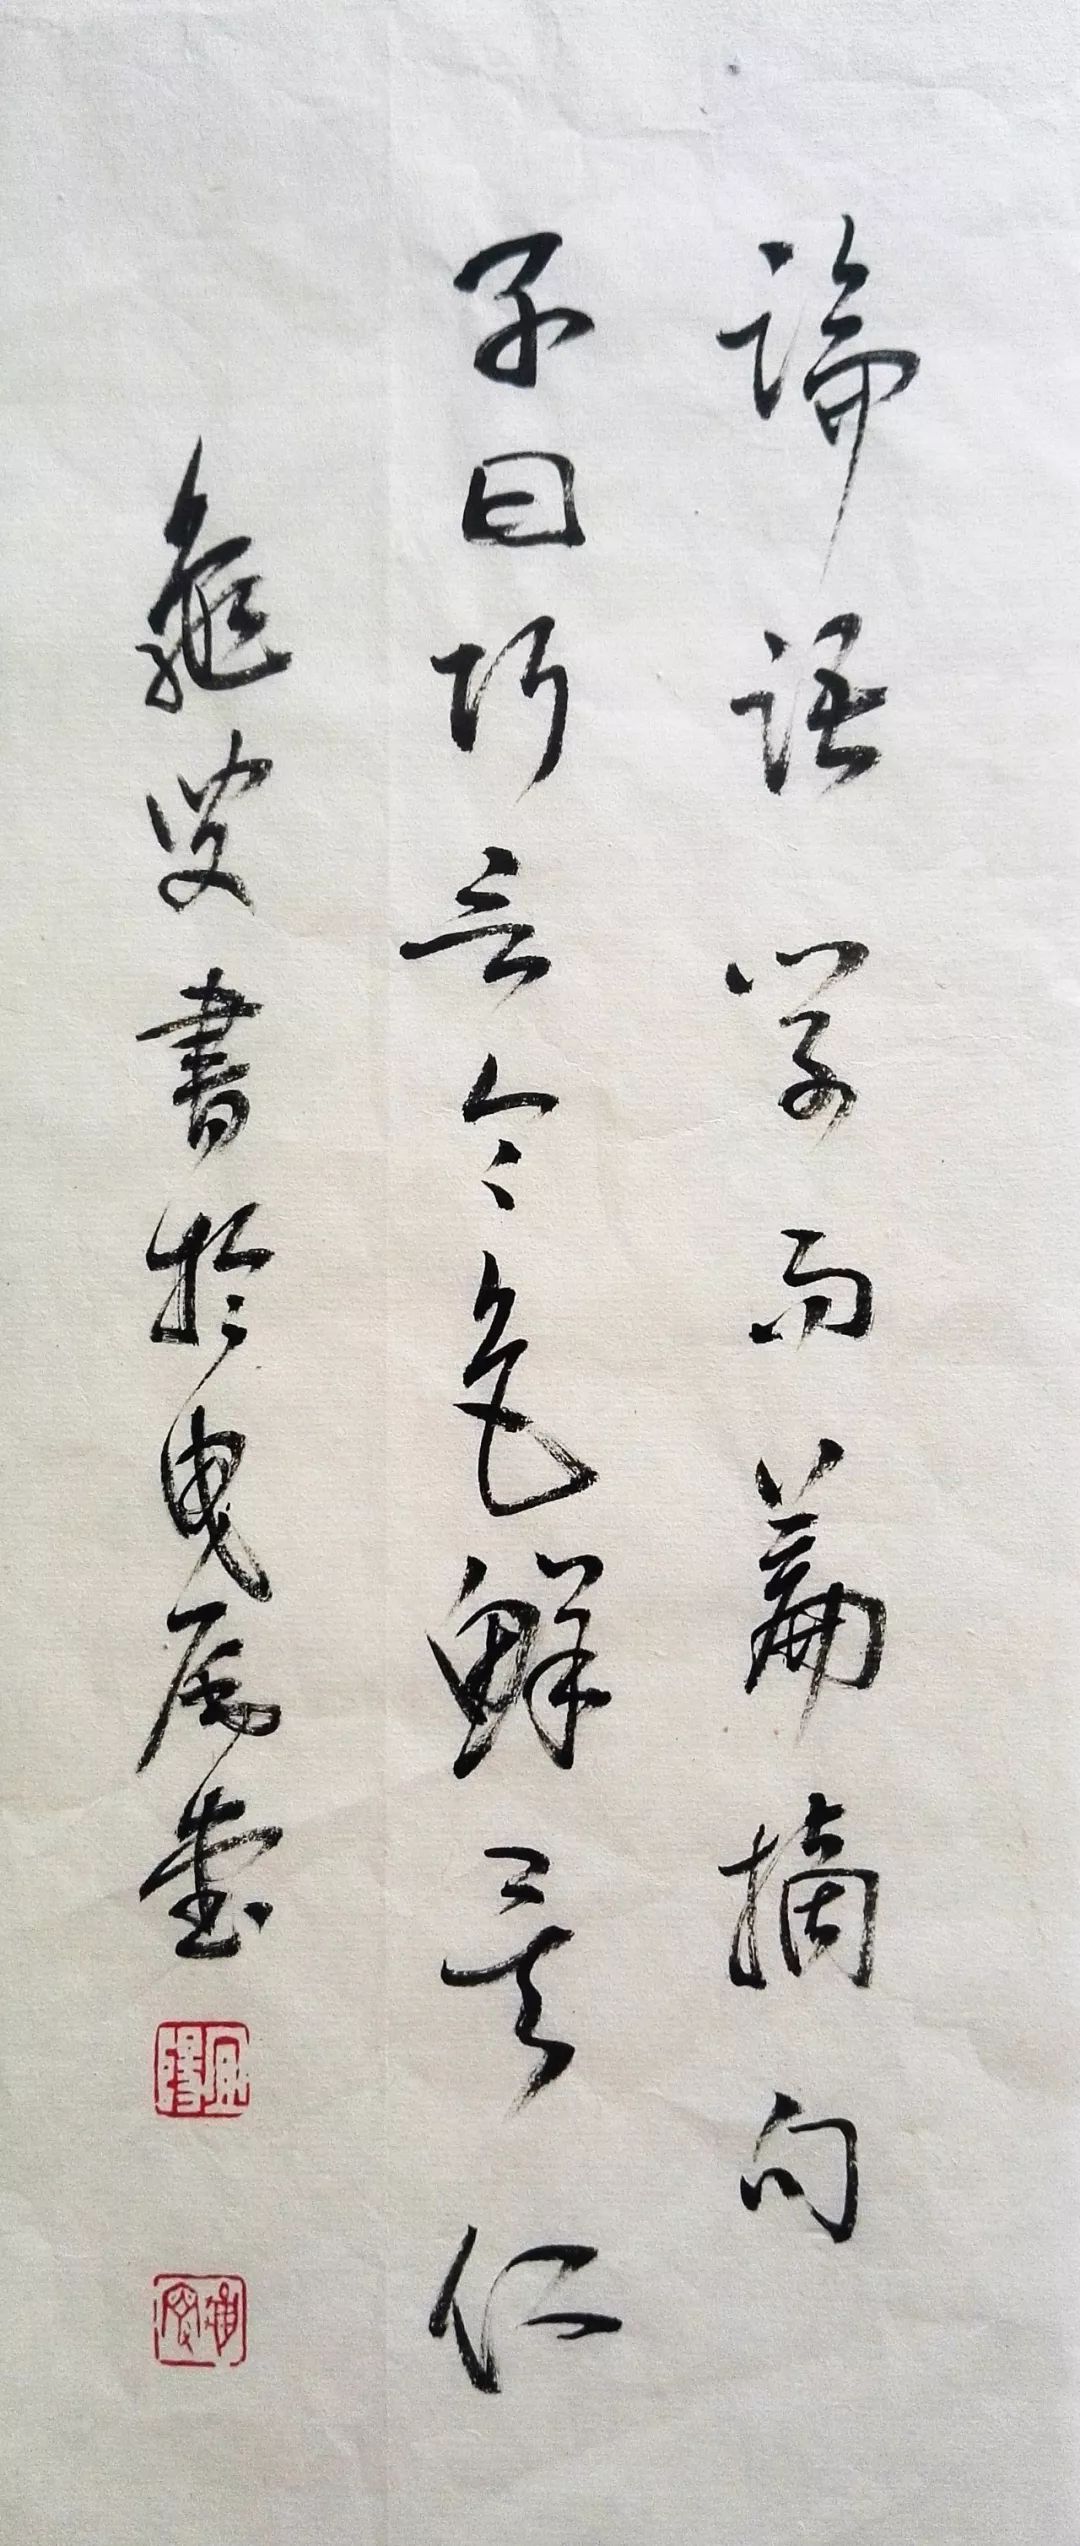 論語学而篇摘句
子曰巧言令色鮮矣仁
龜叟書於曳尾堂